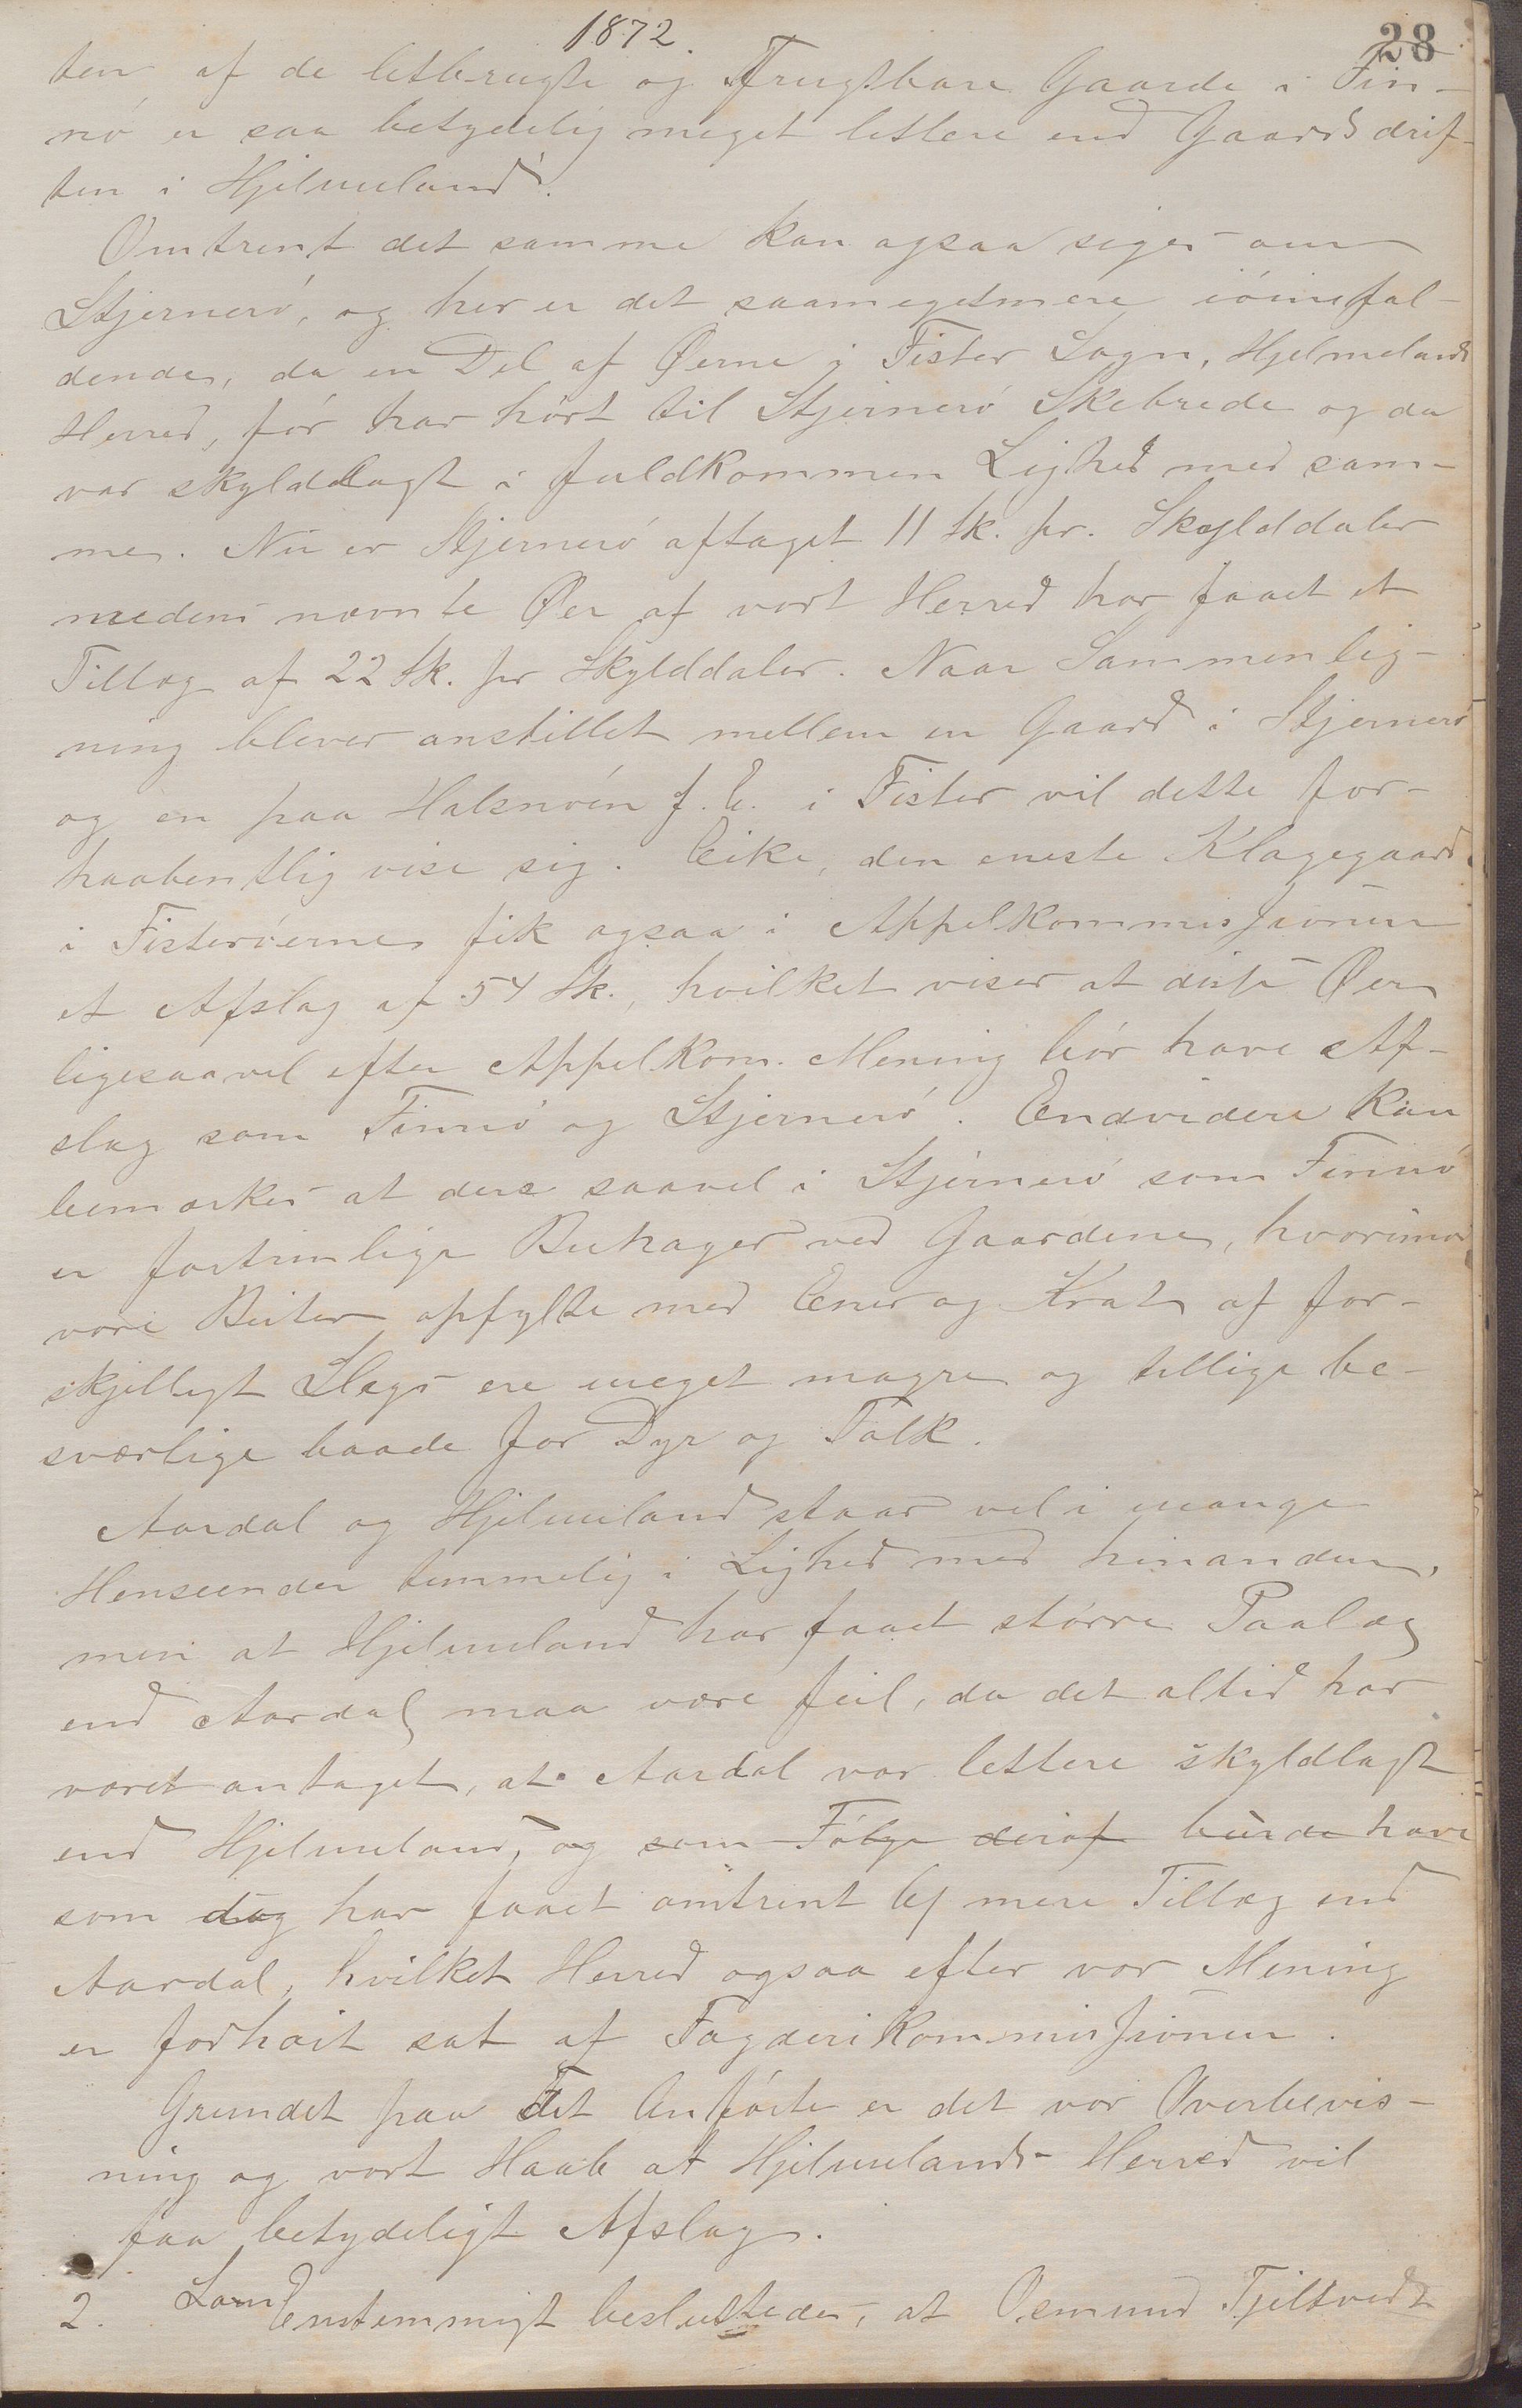 1872.
28
ten af de letbrugte og Frugtbare Gaarde i Fin-
nó er saa betydelig meget lettere end Gaardsdrif-
ten i Hjelmeland.
Omtrent det samme kan ogsaa siges om
Stjerneró, og her er det saamegetmere ióinefal-
dende, da en Del af Øerne i Fister Sogn, Hjelmelands
Herred, fór har hórt til Stjerneró Skebrede og da
var skyldlagt i fuldkommen Lighed med sam-
me. Nu er Stjerneró aftaget 11 Sk. pr. Skylddaler
medens nævnte Øer af vort Herred har faaet et
Tillæg af 22 Sk. pr Skylddaler. Naar Sammenlig-
ning blever anstillet mellem en Gaard i Stjerneró
og en paa Halsnóen f. E. i Fister vil dette for-
haabentlig vise sig. Eike, den eneste Klagegaard
i Fisteróerne fik ogsaa i Appelkommissionen
et Afslag af 54 Sk., hvilket viser at disse Øer
ligesaavel efter Appelkom. Mening bór have Af-
slag som Finnó og Stjerneró. Endvidere kan
bemærkes at der saavel i Stjerneró som Finnó
er fortrinlige Buhager ved Gaardene, hvorimod
vore Beiter opfylte med Ener og Krat af for-
skjelligt Slags ere meget magre og tillige be-
sværlige baade for Dyr og Folk.
Aardal og Hjelmeland staar vel i mange
Henseender temmelig i Lighed med hinanden,
men at Hjelmeland har faaet större Paalæg
end Aardal maa være feil, da det altid har
været antaget, at Aardal var lettere skyldlagt
end Hjelmeland, og som Fólge deraf burde have
som dog har faaet omtrent 6/ mere Tillæg end
Aardal, hvilket Herred ogsaa efter vor Mening
er forhóit sat af Fogderikommissionen.
Grundet paa Det Anfórte er det vor Overbevis-
ning og vort Haab at Hjelmelands Herred vil
faa betydeligt Afslag.
2. Enstemmigt besluttedes, at Osmund Tjeltvedt